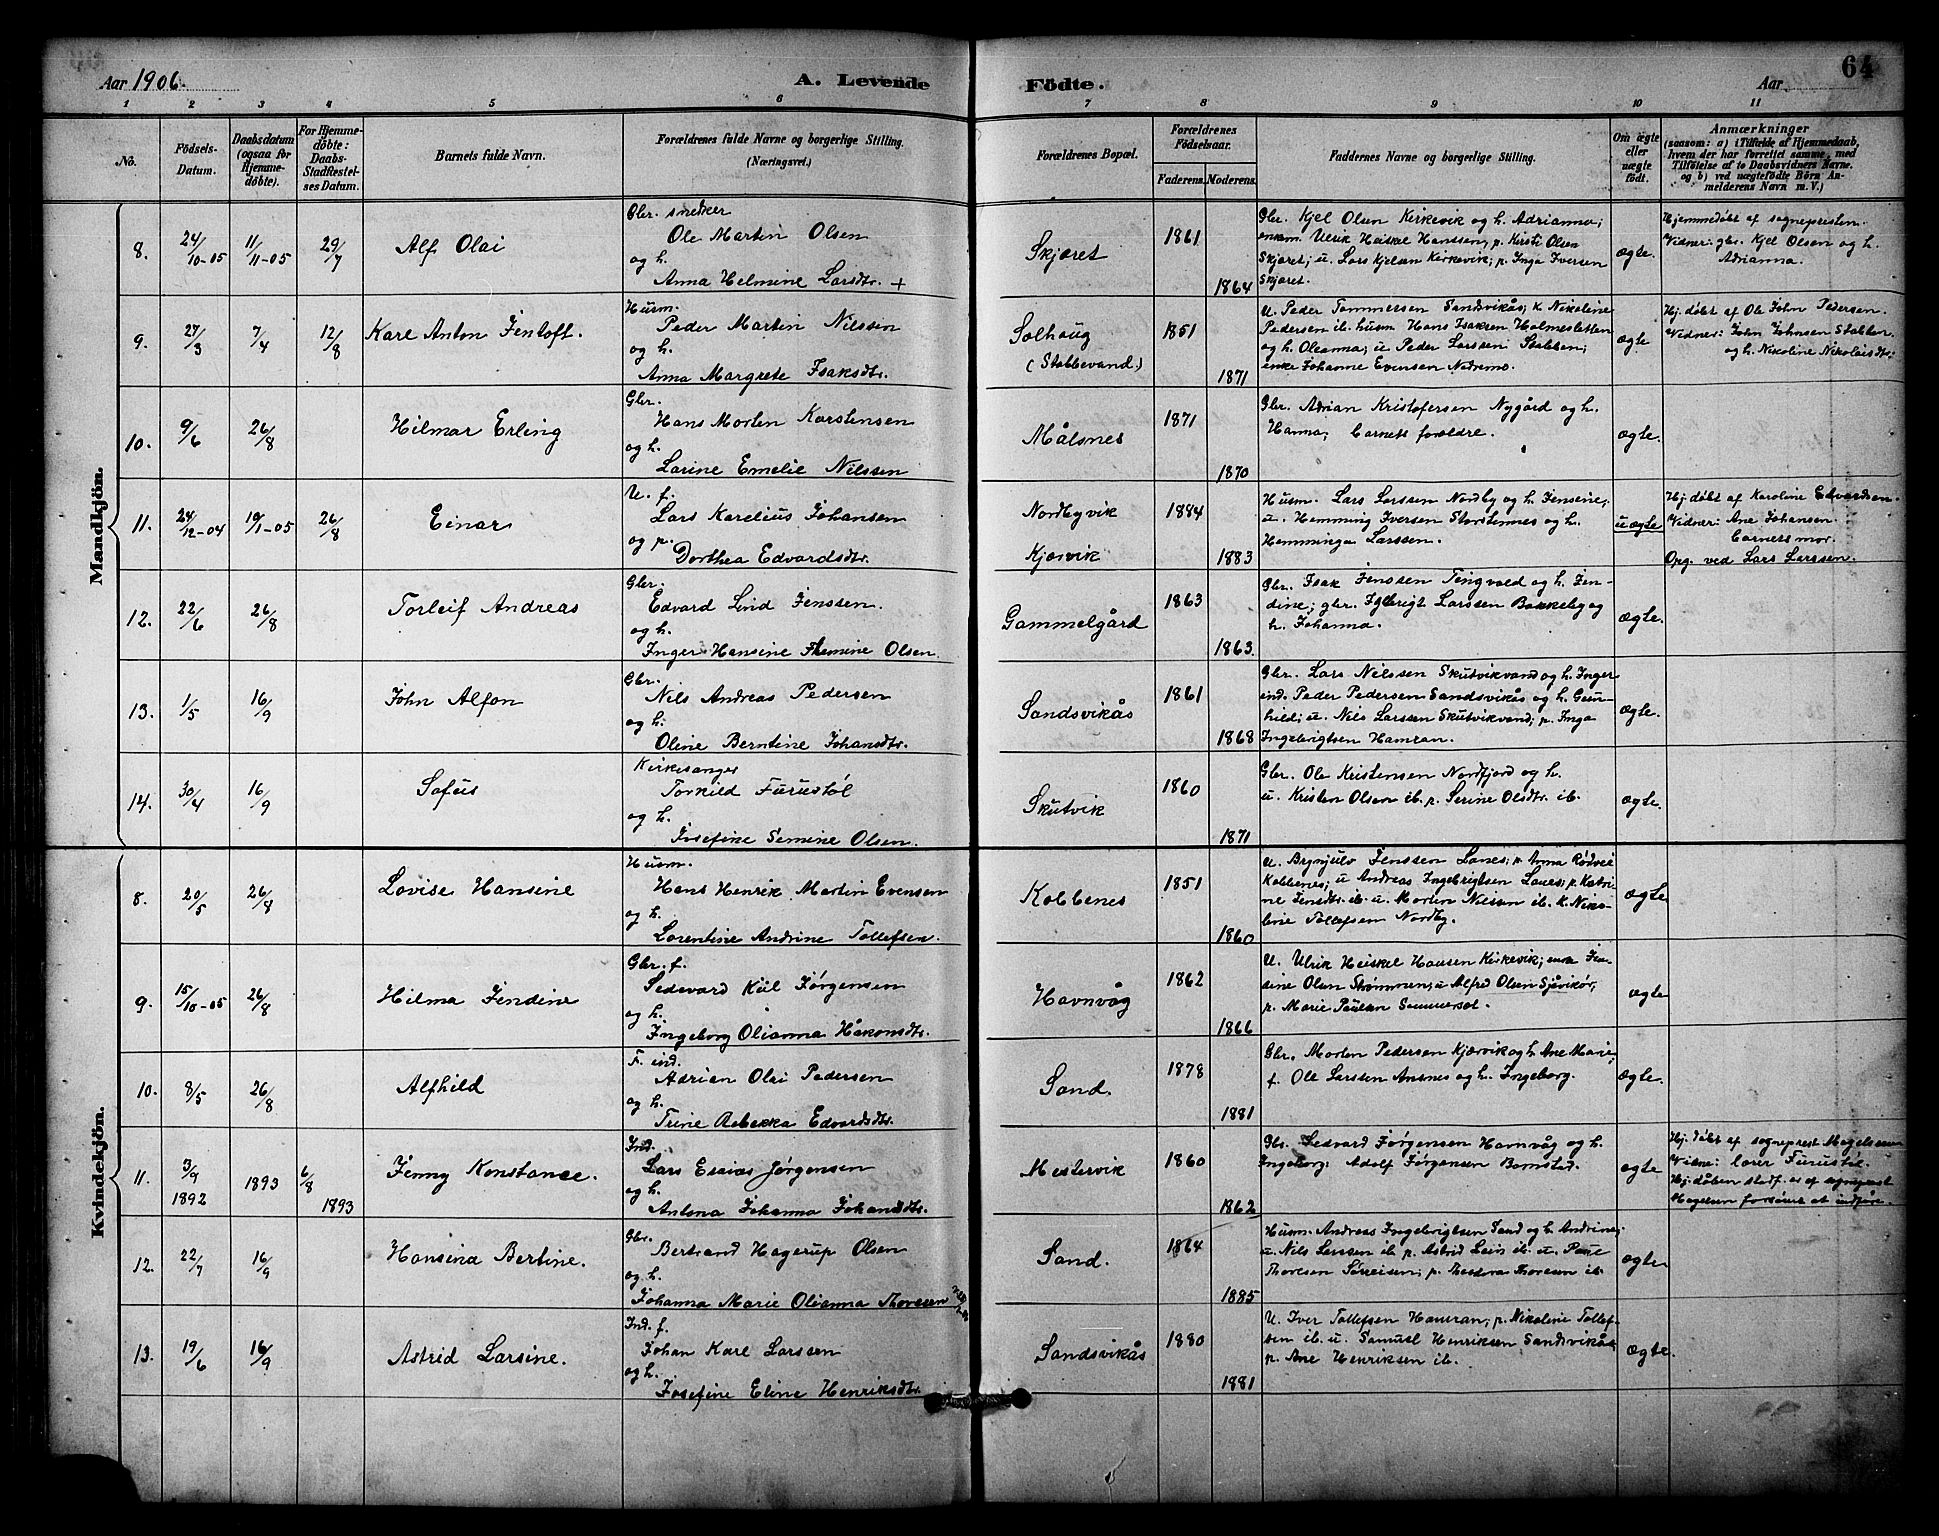 Aar 1906.
A. Levende Födte.
Aar
64
1 2 3 4 5 6 7 8 9 10 11
No.
Födsels-Datum.
Daabsdatum (ogsaa for Hjemme-döbte).
For Hjemme-döbte: Daabs-Stadfæstel-ses Datum.
Barnets fulde Navn.
Forældrenes fulde Navne og borgerlige Stilling. (Næringsvei.)
Forældrenes Bopæl.
Forældrenes Födselsaar.
Faderens. Moderens.
Faddernes Navne og borgerlige Stilling.
Om ægte eller uægte födt.
Anmærkninger
(saasom: a) i Tilfælde af Hjemmedaab,
hvem der har forrettet samme, med
Tilföielse af to Daabsvidners Navne.
og b) ved uægtefödte Börn An-
melderens Navn m. V.)
Mandkjön.
8. 24/10-05 11/11-05 29/7 Alf Olai
Gbr. snedker
Ole Martin Olsen
og h.
Anna Helmine Larsdtr. +
Skjæret 1861 1864
Gbr. Kjel Olsen Kirkevik og h. Adrianna;
enkem. Ulrik Heiskel Hanssen; p. Kirsti Olsen
Skjæret; u. Lars Kjelsen Kirkevik; p. Inga Iversen
Skjæret.
ægte.
Hjemmedøbt af sognepresten.
Vidner: gbr. Kjel Olsen og h.
Adrianna.
9. 27/3 7/4 12/8 Karl Anton Jentoft.
Husm.
Peder Martin Nilssen
og h.
Anna Margrete Isaksdtr.
Solhaug
(Stabbevand.)
1851 1871
U. Peder Tommersen Sandsvikås; k. Nikoline
Pedersen ib. husm. Hans Isaksen Holmesletten
og h. Oleanna; u. Peder Larssen Stabben;
enke Johanne Evensen Nedremo.
ægte
Hj. døbt af Ole John Pedersen.
Vidner: John Johnsen Stabben
og h. Nikoline Nikolaisdtr.
10. 9/6 26/8 Hilmar Erling
Gbr.
Hans Morten Karstensen
og h.
Larine Emelie Nilssen
Målsnes 1871 1870
Gbr. Adrian Kristofersen Nygård og h.
Hanna; barnets forældre.
ægte.
11. 24/12-04 19/1-05 26/8 Einar
U. f.
Lars Karelius Johansen
og p.
Dorthea Edvardsdtr.
Nordbyvik
Kjærvik
1884 1883
Husm. Lars Larssen Nordby og h. Jensine;
u. Hemming Iversen Storstennes og h.
Hemminga Larssen.
uægte
Hj. døbt af Karoline Edvardsen.
Vidner: Ane Johansen.
barnets mor.
Opg. ved Lars Larssen.
12. 22/6 26/8 Torleif Andreas
Gbr.
Edvard Lind Jenssen.
og h.
Inger Hansine Olsen.
Gammelgård 1863 1863.
Gbr. Isak Jenssen Tingvold og h. Jen-
dine; gbr. Larssen Bakkeby og
h. Johanna.
ægte.
13. 1/5 16/9 John Alfon
Gbr.
Nils Andreas Pedersen
og h.
Oline Berntine Johansdtr.
Sandsvikås 1861 1868
Gbr. Lars Nilssen Skutvikvand og h. Inger
ind. Peder Pedersen Sandsvikås og h. Gun-
hild; u. Nils Larssen Skutvikvand; p. Inga
Ingebrigtsen Hamran.
ægte.
14. 30/4 16/9 Sofus
Kirkesanger
Torkild Furustøl
og h.
Josefine Semine Olsen.
Skutvik 1860 1871
Gbr. Ole Kristensen Nordfjord og h.
u. Kristen Olsen ib. p. Serine Olsdtr. ib.
ægte.
Kvindekjön.
8. 20/5 26/8 Lovise Hansine
Husm.
Hans Henrik Martin Evensen
og h.
Lorentine Andrine Tollefsen.
Kobbenes 1851 1860
U. Brynjulv Jenssen Lanes; p. Anna Rödvei
Kobbenes; u. Andreas Ingebrigtsen Lanes; p. Katri-
ne Jensdtr. ib. u. Morten Nilssen ib. k. Niko-
line Tollefsen Nordby.
ægte
9. 15/10-05 26/8 Hilma Jendine
Gbr. f.
Sedevard Kiil Jørgensen
og h.
Ingeborg Olianna Håkonsdtr.
Havnvåg 1862 1866
U. Ulrik Heiskel Hansen Kirkevik; enke Jen-
sine Olsen Strømmen; u. Alfred Olsen Sjåvikør,
p. Marie Paulsen Sommersæt.
ægte
10. 8/5 26/8 Alfhild
F. ind.
Adrian Olai Pedersen
og h.
Trine Rebekka Edvardsdtr.
Sand. 1878 1881
Gbr. Morten Pedersen Kjærvik og h. Ane Marie;
f. Ole Larssen Ansnes og h. Ingeborg.
ægte.
11. 3/9 1892 1893 6/8 1893 Jenny Konstance.
Ind.
Lars Esaias Jørgensen
og h.
Antona Johanna Johansdtr.
Mestervik 1860 1862
Gbr. Sedvard Jørgensen Havnvåg og h.
Ingeborg; Adolf Jørgensen Bomstad.
ægte
Hj. døbt af sogneprest Magelssen
Vidne: lærer Furustøl.
Hj. dåben stadf. es af sogneprest
Magelssen forsömt at indføre.
12. 22/7 16/9 Hansina Bertine.
Gbr.
Bertrand Hagerup Olsen
og h.
Johanna Marie Olianna Thoresen
Sand. 1864 1885
Husm. Andreas Ingebrigtsen Sand og h. Andrine;
u. Nils Larssen ib. p. Astrid Lein ib. u. Paul
Thoresen Sørreisen; p. Theodora Thoresen ib.
ægte.
13. 19/6 16/9 Astrid Larsine.
Ind. f.
Johan Karl Larssen
og h.
Josefine Eline Henriksdtr.
Sandsvikås 1880 1881
U. Iver Tollefsen Hamran; p. Nikoline Tollef-
sen ib. u. Samuel Henriksen Sandsvikås
p. Ane Henriksen ib.
ægte.